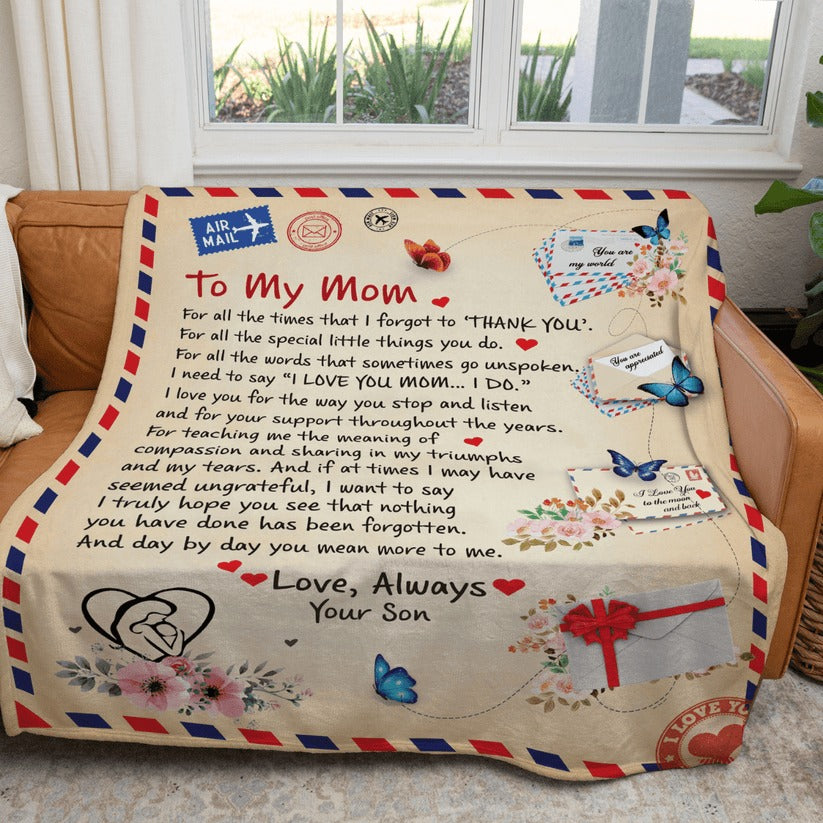 AIR
MAIL
You are
my world
To My Mom
For all the times that I forgot to ‘THANK YOU’.
For all the special little things you do.
For all the words that sometimes go unspoken,
I need to say “I LOVE YOU MOM... I DO.”
I love you for the way you stop and listen
and for your support throughout the years.
For teaching me the meaning of
compassion and sharing in my triumphs
and my tears. And if at times I may have
seemed ungrateful, I want to say
I truly hope you see that nothing
you have done has been forgotten.
And day by day you mean more to me.
Love, Always
Your Son
You are appreciated
I Love You
to the moon
and back
I LOVE YOU